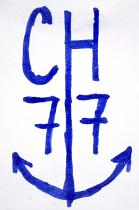 CH
77